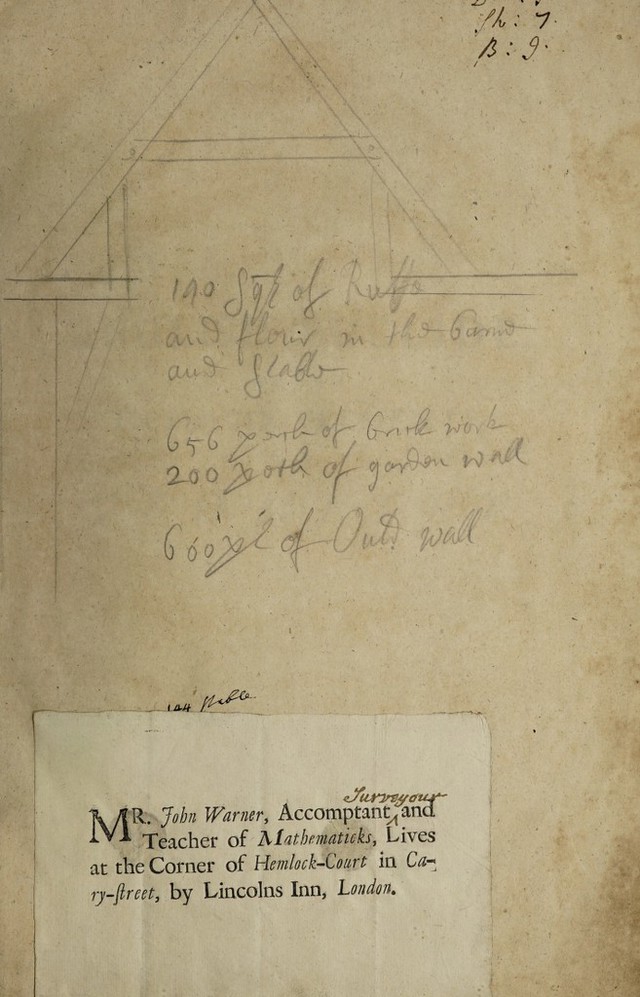 Sh: 7.
B: 9.
190 Sqr of Ruffe
and flour in the barne
and Stable
656 perch of brick work
200 perch of garden wall
600 p of Outd wall
Stable
Surveyour
MR. John Warner, Accomptant ‸ and
Teacher of Mathematicks, Lives
at the Corner of Hemlock-Court in Ca-
ry-ſtreet, by Lincolns Inn, London.